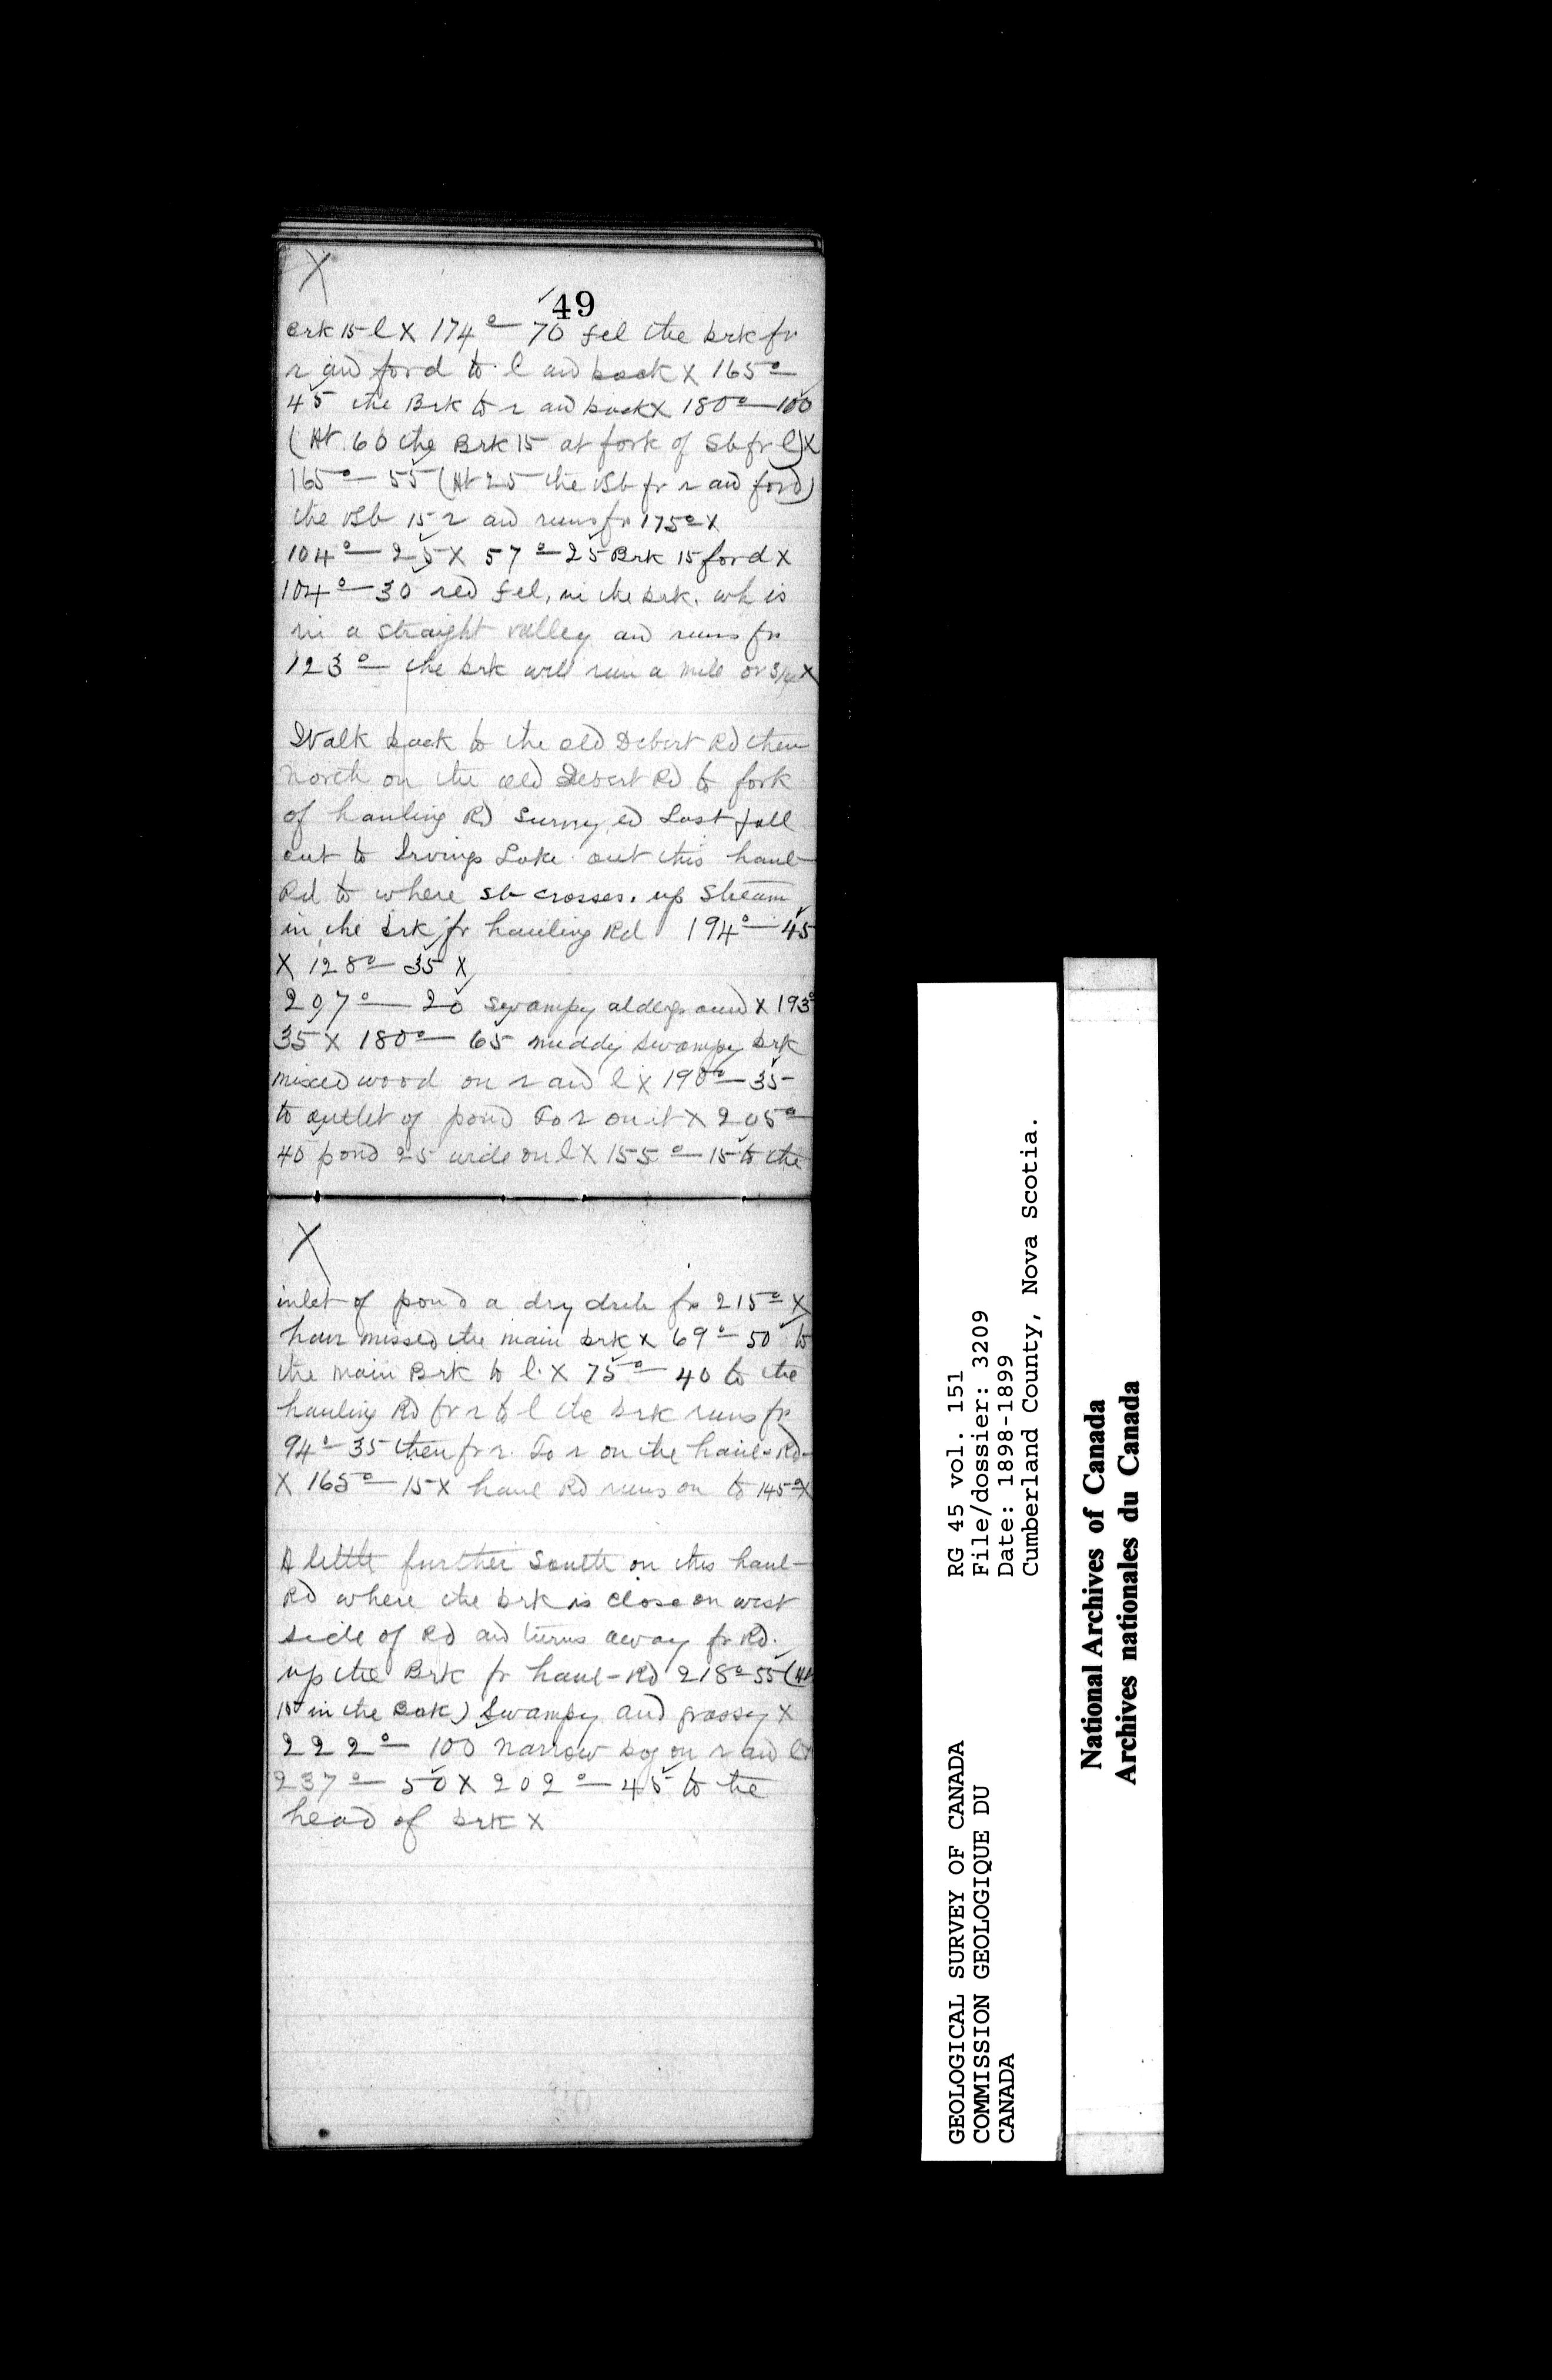 X
49
brk 15 l X 174° — 70 fel the brk fr
r and ford to l and back X 165° —
45 the Brk to r and back X 180° — 100
(At 60 the Brk 15 at fork of Sb fr l) X
165° — 55 (At 25 the Sb fr r and ford)
the Sb 15 r and runs fr 175° X
104° — 25 X 57° — 25 Brk 15 ford X
104° — 30 red fel. in the brk. wh is
in a straight valley and runs fr
123° — the brk will run a mile or 3/4 X
Walk back to the old Debert Rd then
North on the old Debert Rd to fork
of hauling Rd Surveyed Last fall
out to Irvings Lake out this haul-
Rd to where sb crosses. up Stream
in the brk fr hauling Rd 194° — 45
X 128° — 35 X
207° — 20 swampy alderground X 193°
35 X 180° — 65 muddy swampy brk
mixed wood on r and l X 190° — 35
to outlet of pond To r on it X 205° —
40 pond 25 wide on l X 155° — 15 to the
X
inlet of pond a dry fr 215° X
have missed the main brk X 69° — 50 to
the main Brk to l. X 75° — 40 to the
hauling Rd fr r to l the brk runs fr
94° — 35 then fr r. To r on the haul-Rd-
X 165° — 15 X haul Rd runs on to 145° X
A little further South on this haul-
Rd where the brk is close on west
side of Rd and turns away fr Rd.
up the Brk fr haul-Rd 218° — 55 (At
15 in the Brk) Swampy and grassy X
222° — 100 narrow bog on r and l X
237° — 50 X 202° — 45 to the
head of brk X
GEOLOGICAL SURVEY OF CANADA
COMMISSION GEOLOGIQUE DU
CANADA
RG 45 vol. 151
File/dossier: 3209
Date: 1898-1899
Cumberland County, Nova Scotia.
National Archives of Canada
Archives nationales du Canada